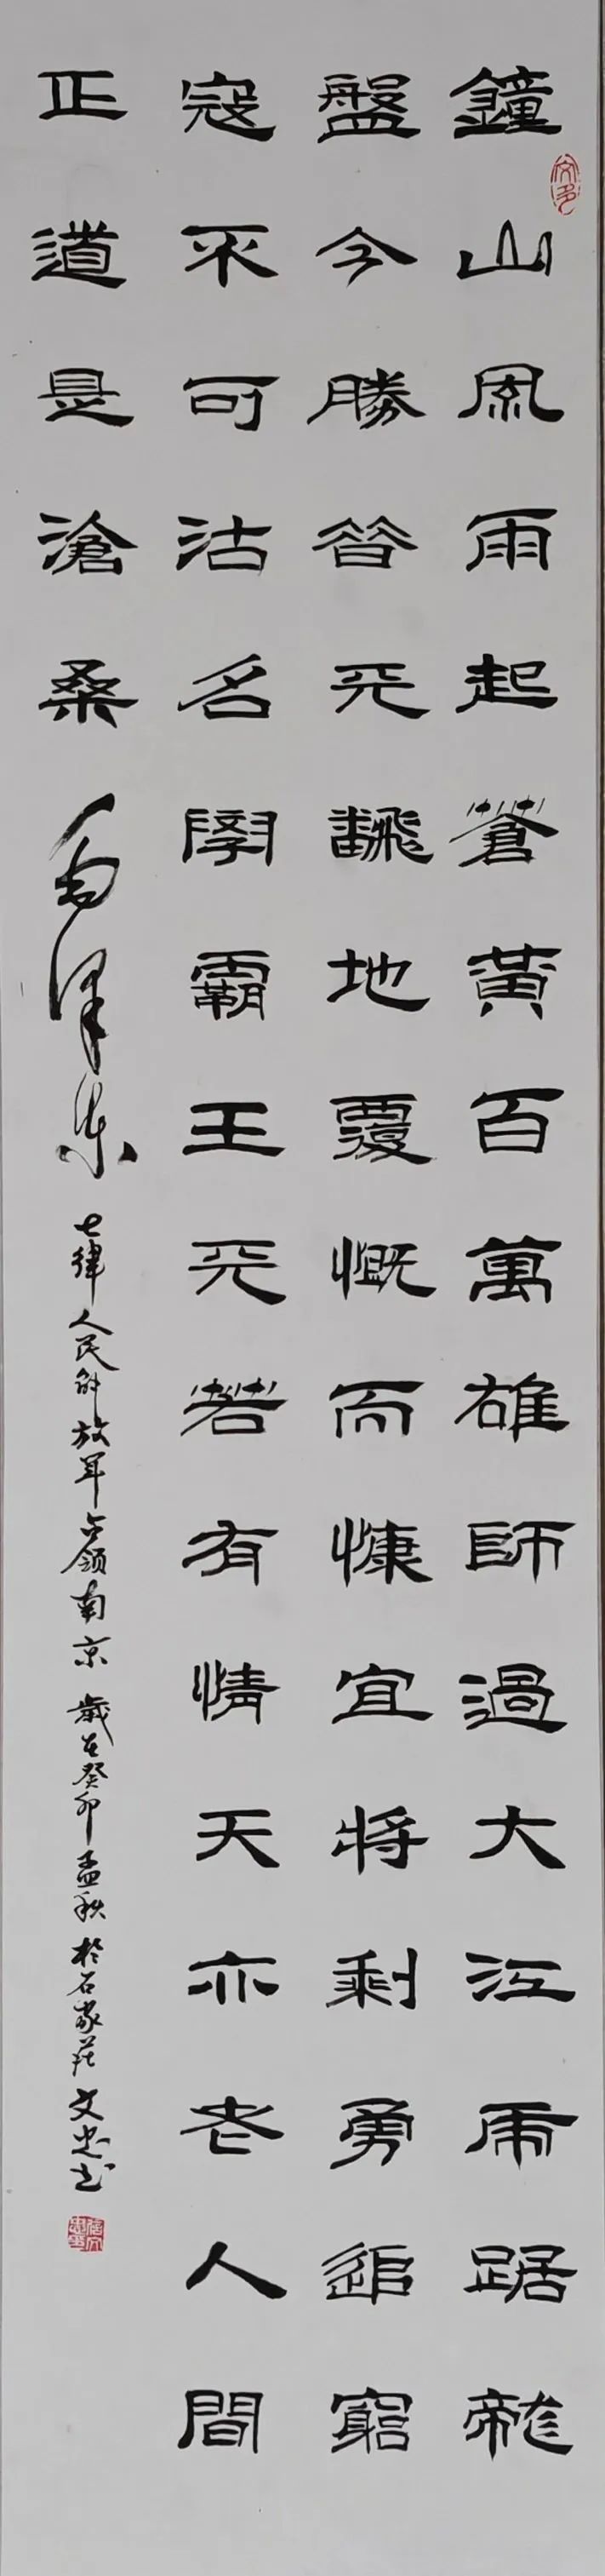 鐘山風雨起蒼黃百萬雄師過大江虎踞龍
盤今勝昔天飜地覆慨而慷宜將剩勇追窮
寇不可沽名學霸王天若有情天亦老人間
正道是滄桑 毛澤東 七律 人民解放军占領南京 歲在癸卯孟秋於石家莊文忠书